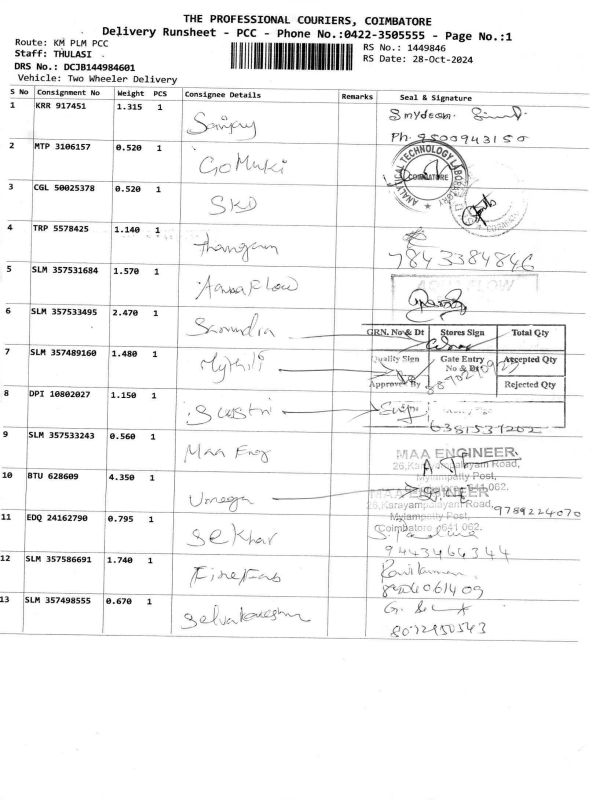 THE PROFESSIONAL COURIERS, COIMBATORE
Delivery Runsheet - PCC - Phone No.:0422-3505555 - Page No.:1
Route: KM PLM PCC
Staff: THULASI
DRS No.: DCJB144984601
Vehicle: Two Wheeler Delivery
RS No.: 1449846
RS Date: 28-Oct-2024
S No Consignment No Weight PCS Consignee Details Remarks Seal & Signature
1 KRR 917451 1.315 1 Sanjay
Ph. 9500943150
2 MTP 3106157 0.520 1 GoMuki
ANALYTICAL TECHNOLOGY LABORATORY
COIMBATORE
3 CGL 50025378 0.520 1 SKD
4 TRP 5578425 1.140 1 Thangam
7843384846
5 SLM 357531684 1.570 1 Aqua Flow
AQUA FLOW
6 SLM 357533495 2.470 1
GRN. No & Dt Stores Sign Total Qty
7 SLM 357489160 1.480 1 Mythili
Quality Sign Gate Entry No & Dt Accepted Qty
Approved By Rejected Qty
8 DPI 10802027 1.150 1
6381537202
9 SLM 357533243 0.560 1 Maa Eng
MAA ENGINEER
26,Karayampalayam Road,
Mylampatty Post,
Coimbatore - 641 062.
10 BTU 628609 4.350 1 Omega
MAA ENGINEER
26,Karayampalayam Road,
Mylampatty Post,
Coimbatore - 641 062.
9789224070
11 EDQ 24162790 0.795 1 Sekhar
9443464344
12 SLM 357586691 1.740 1 FineFab
13 SLM 357498555 0.670 1
8072950543